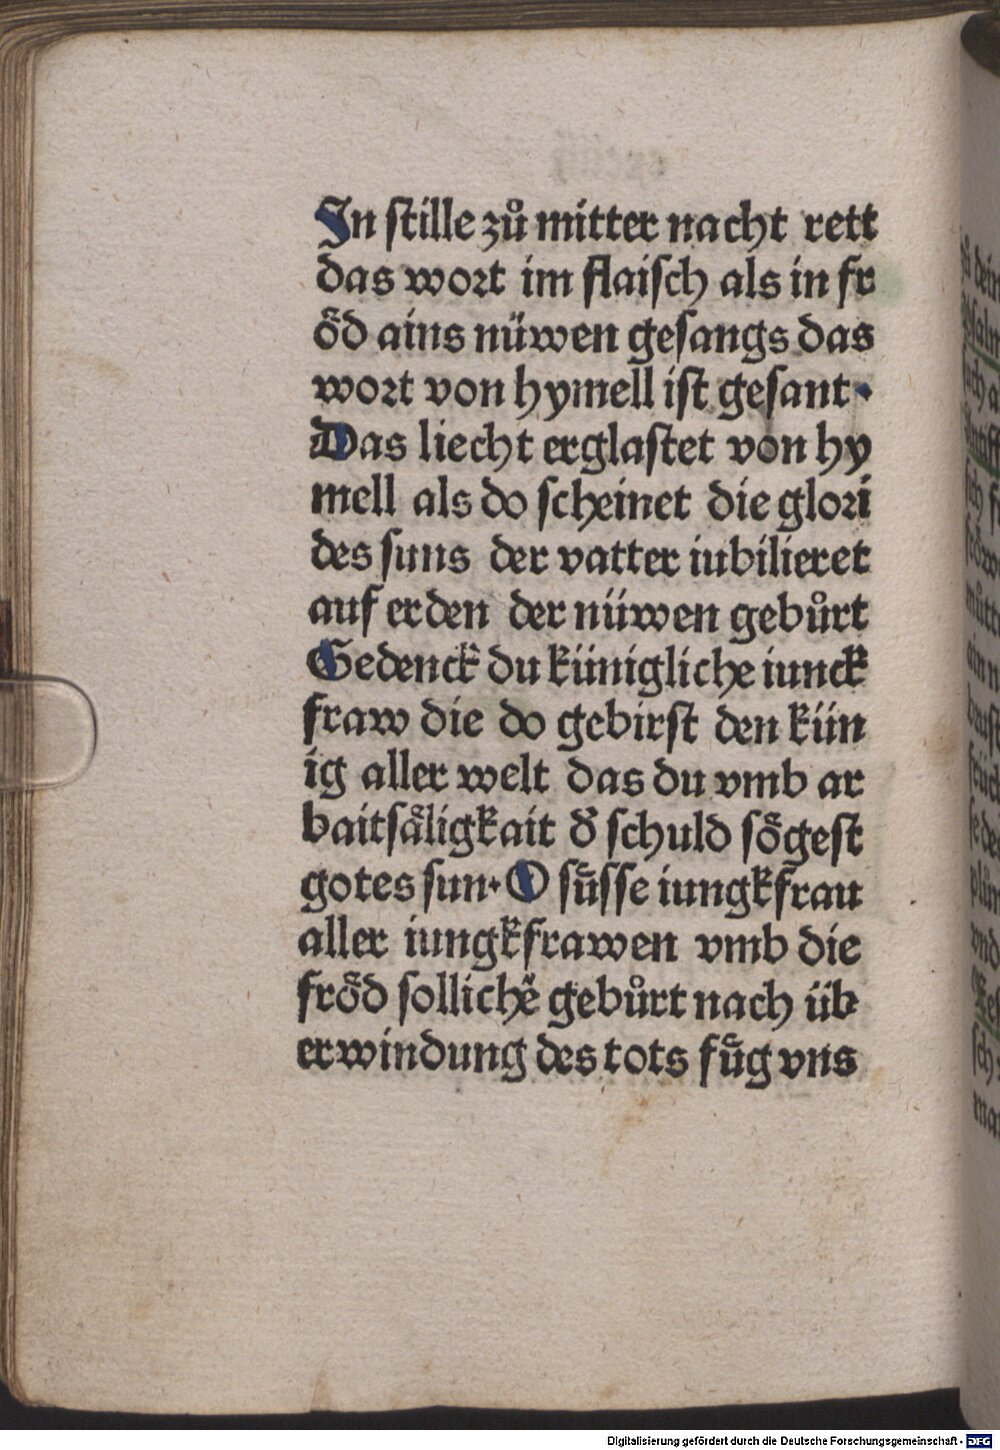 In ſtille zů mitter nacht rett
das wort im flaiſch als in fr
öd ains nüwen geſangs das
wort von hymell iſt geſant ·
Das liecht erglaſtet von hy
mell als do ſcheinet die glori
des ſuns der vatter iubilieret
auf erden der nüwen gebůrt
Gedenck du künigliche iunck
fraw die do gebirſt den kün
ig aller welt das du vmb ar
baitſäligkait d̕ ſchuld ſögeſt
gotes ſun · O ſüſſe iungkfrau
aller iungkfrawen vmb die
fröd ſollichē gebůrt nach üb
erwindung des tots füg vns
Digitalisierung gefördert durch die Deutsche Forschungsgemeinschaft - DFG